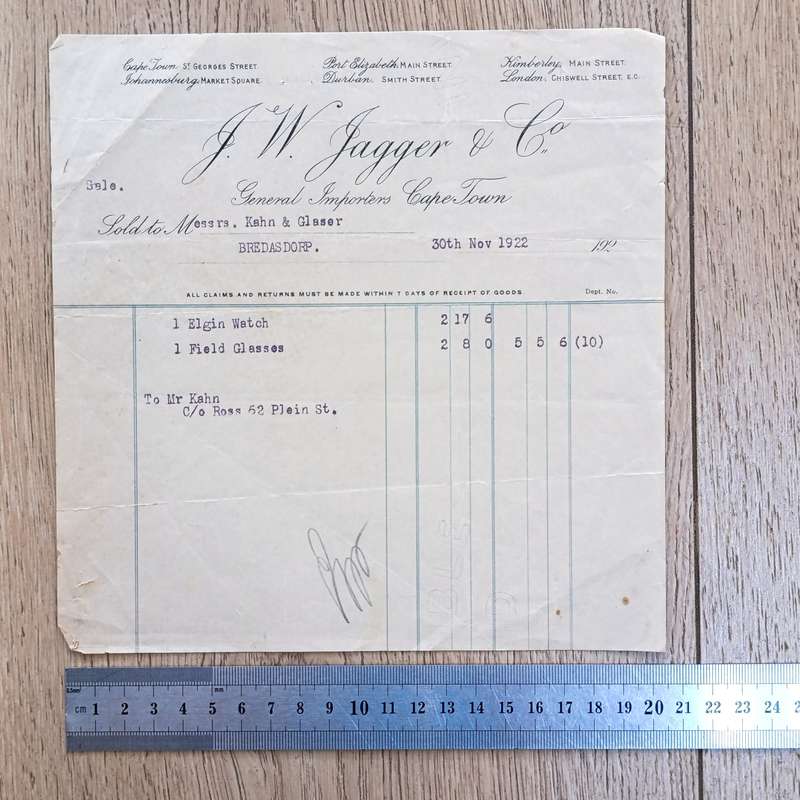 Cape Town. ST GEORGES STREET.
Port Elizabeth. MAIN STREET.
Kimberley, MAIN STREET.
Johannesburg. MARKET SQUARE.
Durban. SMITH STREET.
London. CHISWELL STREET, E.C.
J. W. Jagger & Co.
General Importers Cape Town
Sale.
Sold to Messrs. Kahn & Glaser
BREDASDORP. 30th Nov 1922 192
ALL CLAIMS AND RETURNS MUST BE MADE WITHIN 7 DAYS OF RECEIPT OF GOODS Dept. No.
1 Elgin Watch 2 17 6
1 Field Glasses 2 8 0 5 5 6 (10)
To Mr Kahn
C/o Ross 62 Plein St.
0.5mm mm
cm 1 2 3 4 5 6 7 8 9 10 11 12 13 14 15 16 17 18 19 20 21 22 23 24